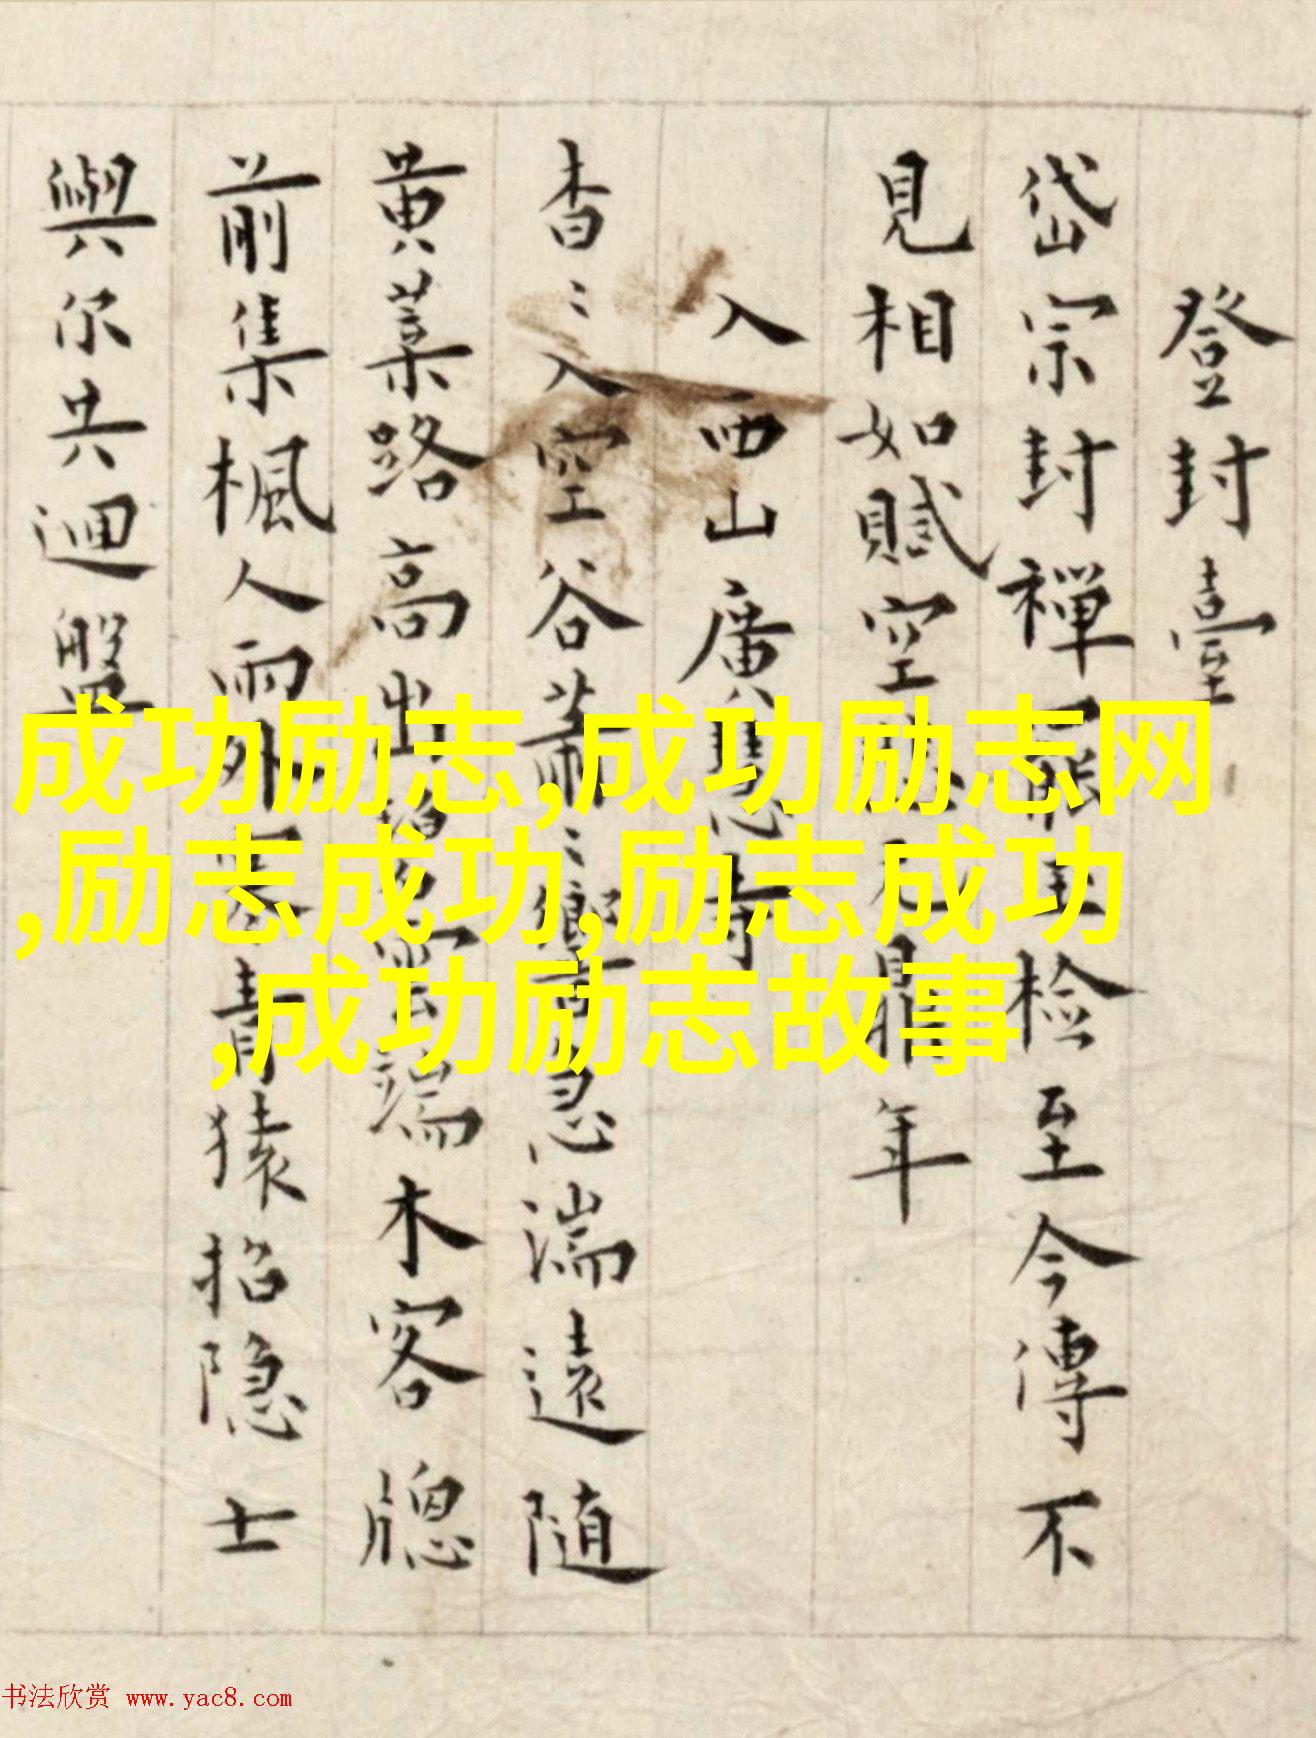 登封臺
岱宗封禪
檢至今傳不
見相如賦空
年
入西山廣慧寺
杳〻入空谷蕭〻
急湍遠随
黄葉路高出
端木客牕
前集楓人雨外
青猿招隐士
與尔共迴盤
成功励志,成功励志网
,励志成功,励志成功
,成功励志故事
书法欣赏 www.yac8.com